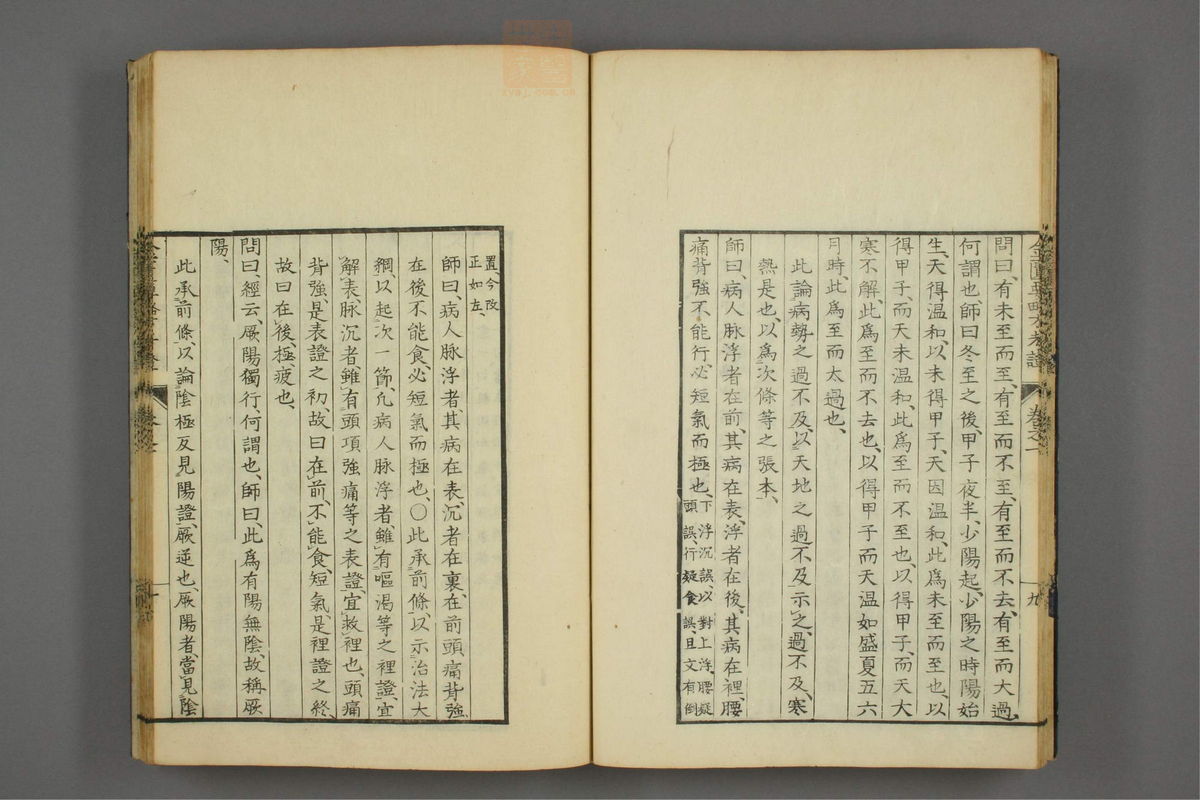 問曰、有未至而至、有至而不至、有至而不去、有至而大過、
何謂也、師曰、冬至之後、甲子夜半、少陽起、少陽之時陽始
生、天得溫和、以未得甲子、天因溫和、此為未至而至也、以
得甲子、而天未溫和、此為至而不至也、以得甲子、而天大
寒不解、此為至而不去也、以得甲子而天溫如盛夏五六
月時、此為至而太過也、
此論病勢之過不及、以天地之過不及、示之、過不及、寒
熱是也、以為次條等之張本、
師曰、病人脉浮者在前、其病在表、浮者在後、其病在裡、腰
痛背強不能行、必短氣而極也、
下浮沉誤、以對上浮、腰疑
頭誤、行疑食誤、且文有倒
置、今改
正如左、
師曰、病人脉浮者、其病在表、沉者在裏、在前頭痛背強、
在後不能食、必短氣而極也、○此承前條、以示治法大
綱、以起次一節、凡病人脉浮者、雖有嘔渴等之裡證、宜
解表、脉沉者、雖有頭項強痛等之表證、宜救裡也、頭痛
背強、是表證之初、故曰在前、不能食、短氣、是裡證之終、
故曰在後、極、疲也、
問曰、經云、厥陽獨行、何謂也、師曰、此為有陽無陰、故稱厥
陽、
此承前條、以論陰極反見陽證、厥逆也、厥陽者、當見陰
卷之一
九